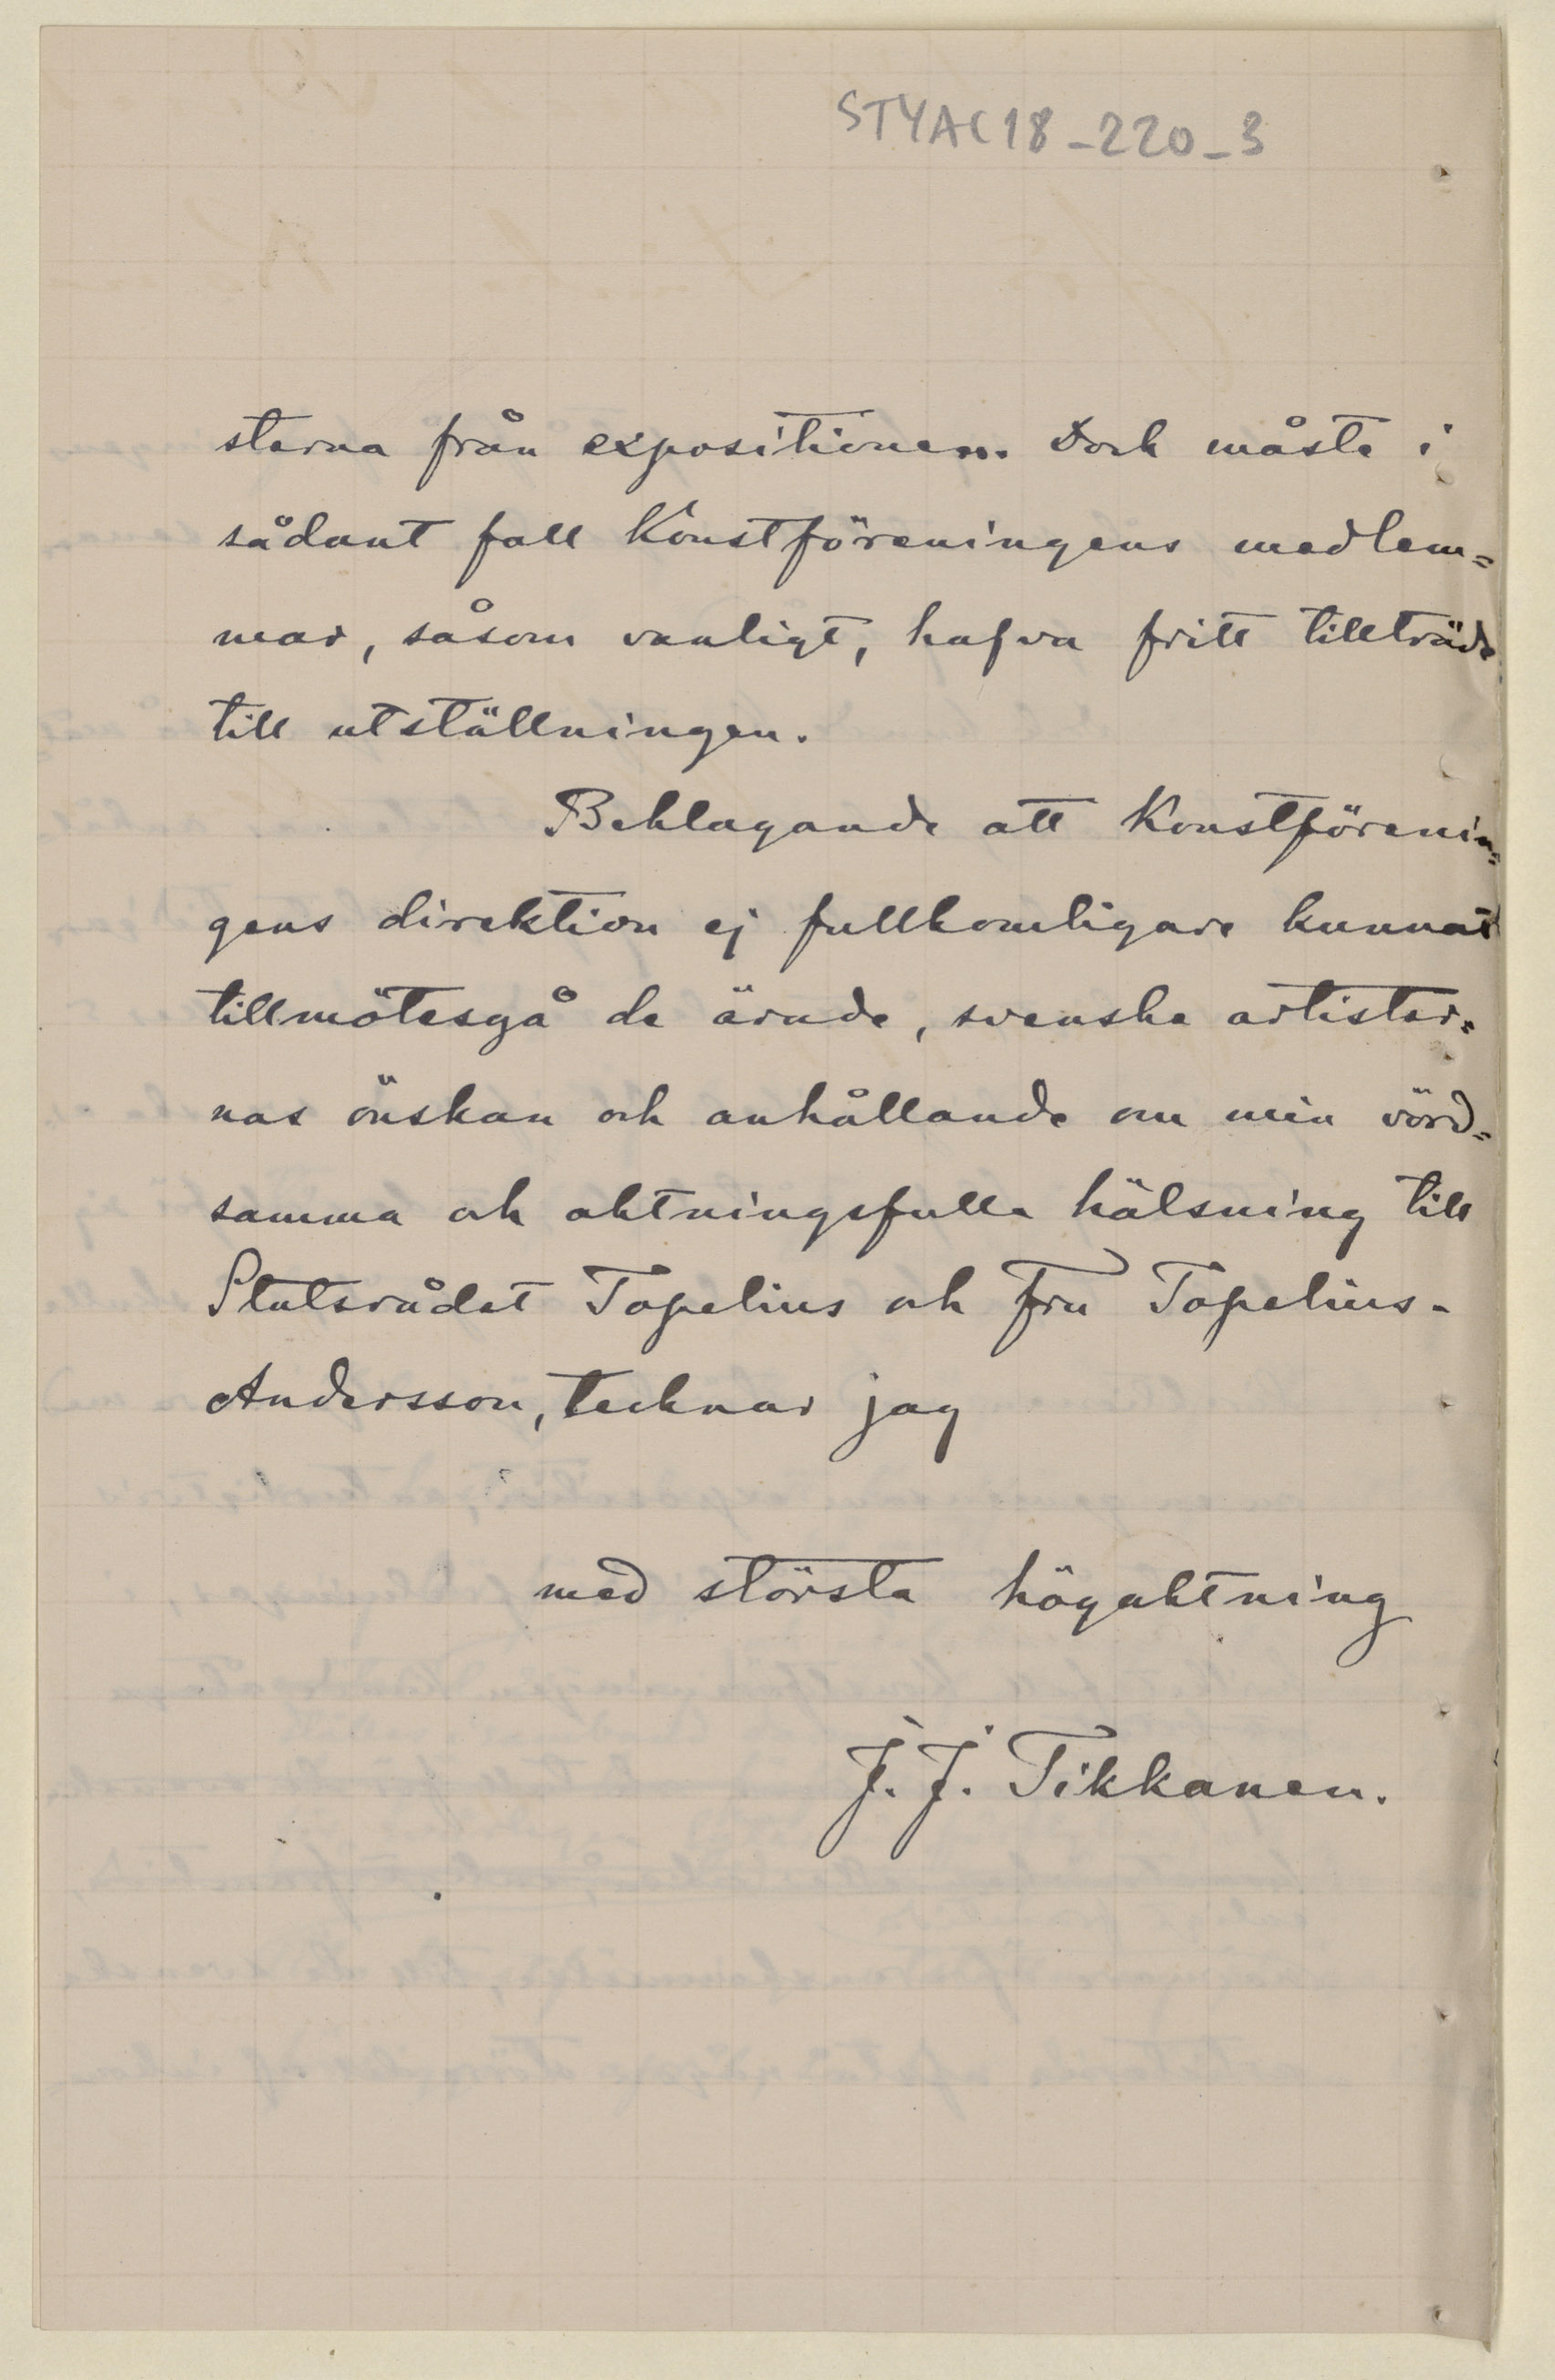 STYAC18_220_3
sterna från expositionen. Dock måste i
sådant fall Konstföreningens medlem=
mar, såsom vanligt, hafva fritt tillträde
till utställningen.
Beklagande att Konstförenin=
gens direktion ej fullkomligare kunnat
tillmötesgå de ärade, svenska artister=
nas önskan och anhållande om min vörd=
samma och aktningsfulla hälsning till
Statsrådet Topelius och Fru Topelius-
Andersson, tecknar jag
med största högaktning
J. J. Tikkanen.